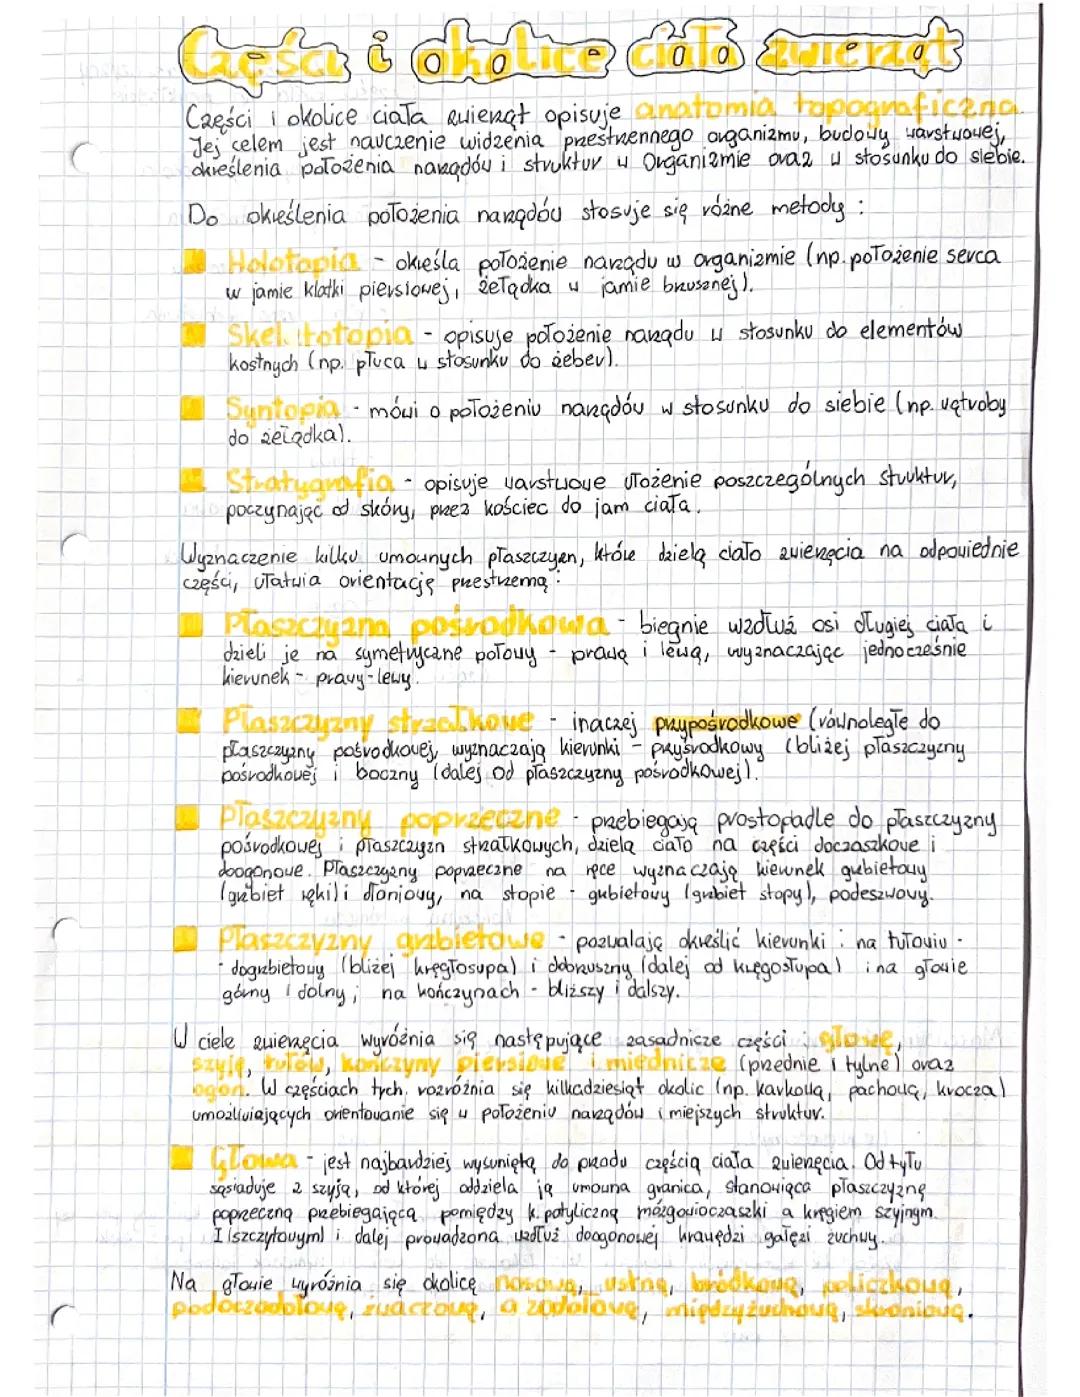 Części i okolice ciała zwierząt
Części i okolice ciała zwierząt opisuje anatomia topograficzna.
Jej celem jest nauczenie widzenia przestrzennego organizmu, budowy warstwowej,
określenia położenia narządów i struktur w organizmie oraz w stosunku do siebie.
Do określenia położenia narządów stosuje się różne metody :
Holotopia - określa położenie narządu w organizmie (np. położenie serca
w jamie klatki piersiowej, żełądka w jamie brzusznej).
Skeletotopia - opisuje położenie narządu w stosunku do elementów
kostnych (np. płuca w stosunku do żeber).
Syntopia - mówi o położeniu narządów w stosunku do siebie (np. wątroby
do żełądka).
Stratygrafia - opisuje warstwowe ułożenie poszczególnych struktur,
poczynając od skóry, przez kościec do jam ciała.
Wyznaczenie kilku umownych płaszczyzn, które dzielą ciało zwierzęcia na odpowiednie
części, ułatwia orientację przestrzenną :
Płaszczyzna pośrodkowa - biegnie wzdłuż osi długiej ciała i
dzieli je na symetryczne połowy - prawą i lewą, wyznaczając jednocześnie
kierunek - prawy-lewy.
Płaszczyzny strzałkowe - inaczej przypośrodkowe (równoległe do
płaszczyzny pośrodkowej, wyznaczają kierunki - przyśrodkowy (bliżej płaszczyzny
pośrodkowej i boczny (dalej od płaszczyzny pośrodkowej).
Płaszczyzny poprzeczne - przebiegają prostopadle do płaszczyzny
pośrodkowej i płaszczyzn strzałkowych, dzielą ciało na części doczaszkowe i
doogonowe. Płaszczyzny poprzeczne na ręce wyznaczają kierunek grzbietowy
(grzbiet ręki) i dłoniowy, na stopie - grzbietowy (grzbiet stopy), podeszwowy.
Płaszczyzny grzbietowe - pozwalają określić kierunki : na tułowiu -
- dogrzbietowy (bliżej kręgłosupa) i dobrzuszny (dalej od kręgosłupa) i na głowie
górny i dolny; na kończynach - bliższy i dalszy.
W ciele zwierzęcia wyróżnia się następujące zasadnicze części : głowę,
szyję, tułów, kończyny piersiowe i miednicze (przednie i tylne) oraz
ogon. W częściach tych, rozróżnia się kilkadziesiąt okolic (np. karkową, pachową, krocza)
umożliwiających orientowanie się w położeniu narządów i miejszych struktur.
Głowa - jest najbardziej wysuniętą do przodu częścią ciała zwierzęcia. Od tyłu
sąsiaduje z szyją, od której oddziela ją umowna granica, stanowiąca płaszczyznę
poprzeczną przebiegającą pomiędzy k. potyliczną mózgowioczaszki a kręgiem szyjnym
I (szczytowym) i dalej prowadzona wzdłuż doogonowej krawędzi gałęzi żuchwy.
Na głowie wyróżnia się okolicę nosową, ustną, bródkową, policzkową,
podoczodołową, żwaczową, oczodołową, międzyżuchwową, skroniową.